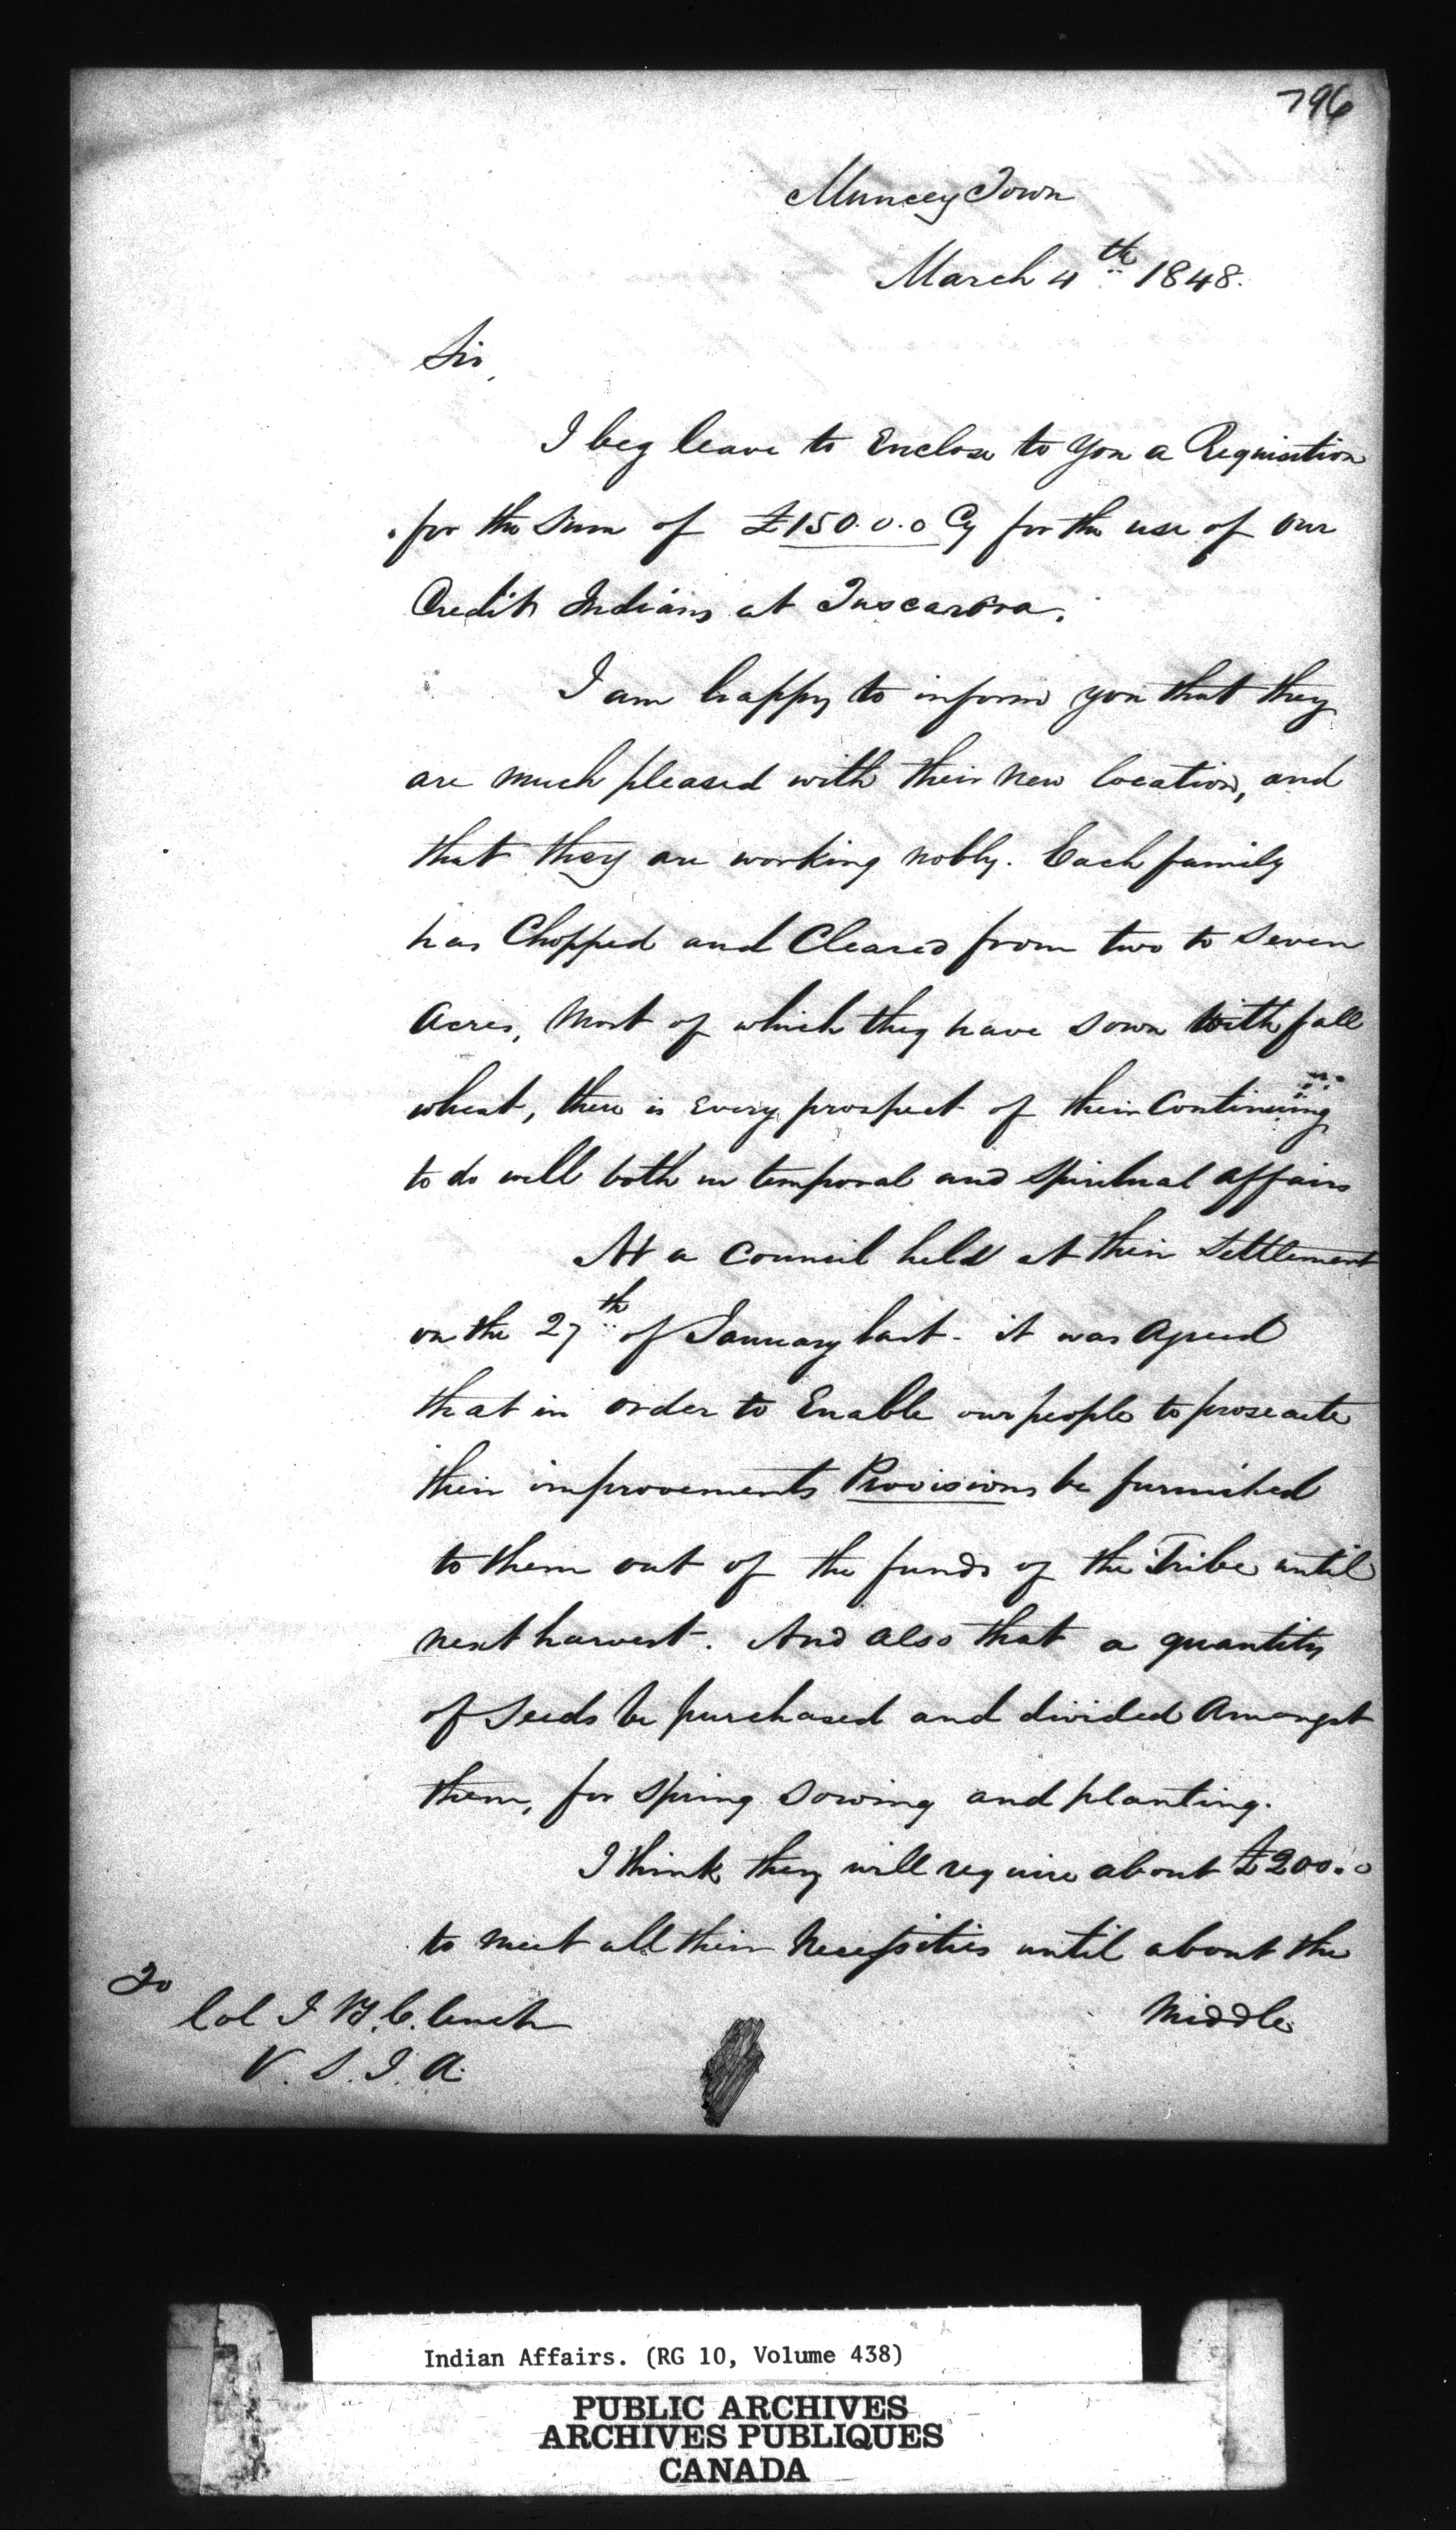 796
Muncey Town
March 4th 1848.
Sir,
I beg leave to Enclose to You a Requisition
for the Sum of £150.0.0 Cy for the use of our
Credit Indians at Tuscarora.
I am happy to inform you that they
are much pleased with their new location, and
that they are working nobly. Each family
has Chopped and Cleared from two to seven
Acres, Most of which they have sown With fall
wheat, there is Every prospect of their Continuing
to do well both in temporal and Spiritual affairs
At a Council held at their Settlement
on the 27th of January last - it was Agreed
that in order to Enable our people to prosecute
their improvements Provisions be furnished
to them out of the funds of the Tribe until
next harvest. And also that a quantity
of Seeds be purchased and divided Amongst
them, for Spring Sowing and planting.
I think they will require about £200.0
to meet all their Necessities until about the
Middle
To
Col J B. Clench
V. S. I. A.
Indian Affairs. (RG 10, Volume 438)
PUBLIC ARCHIVES
ARCHIVES PUBLIQUES
CANADA